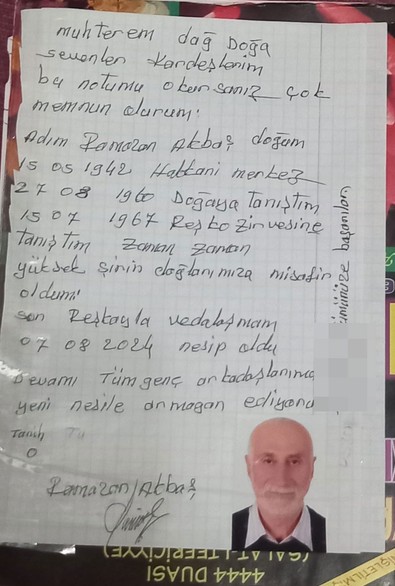 muhterem dağ Doğa
sevenler kardeşlerim
bu notumu okursanız çok
memnun olurum:
Adım Ramazan Akbaş doğum
15 05 1942 Hakkari merkez
27 08 1960 Doğaya Tanıştım
15 07 1967 Reşko zirvesine
Tanıştım zaman zaman
yüksek şirin dağlarımıza misafir
oldum
son Reşkoyla vedalaşmam
07 08 2024 nesip oldu
Devamı Tüm genç arkadaşlarıma
yeni nesile armağan ediyoru
Tarih
0
Ramazan Akbaş
başarılar
4444 DUASI
(SALAT-I TEFRİCİYYE)